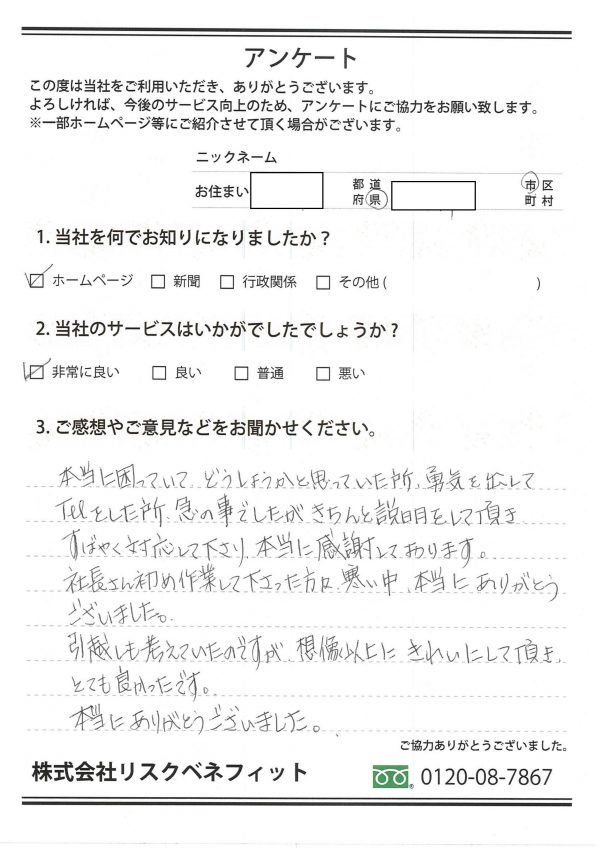 アンケート
この度は当社をご利用いただき、ありがとうございます。
よろしければ、今後のサービス向上のため、アンケートにご協力をお願い致します。
※一部ホームページ等にご紹介させて頂く場合がございます。
ニックネーム
お住まい 都道府県 市区町村
1. 当社を何でお知りになりましたか？
ホームページ 新聞 行政関係 その他( )
2. 当社のサービスはいかがでしたでしょうか？
非常に良い 良い 普通 悪い
3. ご感想やご意見などをお聞かせください。
本当に困っていて、どうしようかと思っていた所、勇気を出して
Telをした所、急の事でしたがきちんと説明をして頂き
すばやく対応して下さり、本当に感謝しております。
社長さん初め作業して下さった方々、寒い中、本当にありがとう
ございました。
引越しも考えていたのですが、想像以上にきれいにして頂き、
とても良かったです。
本当にありがとうございました。
ご協力ありがとうございました。
株式会社リスクベネフィット 0120-08-7867